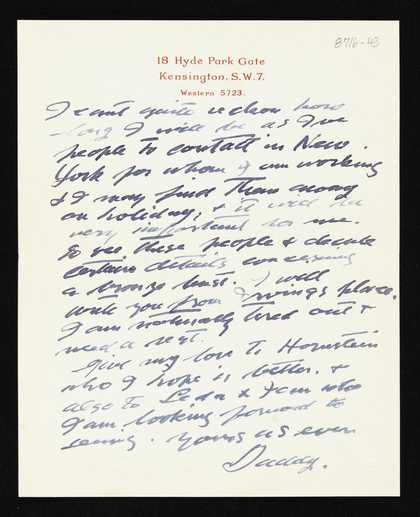 8716-43
18 Hyde Park Gate
Kensington. S.W.7.
Western 5723.
I can't quite reckon how
long I will be as I've
people to contact in New
York for whom I am working
& I may find them away
on holiday, & it will be
very important for me.
to see these people & decide
certain details concerning
a bronze bust. I will
write you from Irvings place.
I am naturally tired out &
need a rest.
Give my love to Hornstein
who I hope is better. &
also to Leda & Jem who
I am looking forward to
seeing. Yours as ever
Daddy.